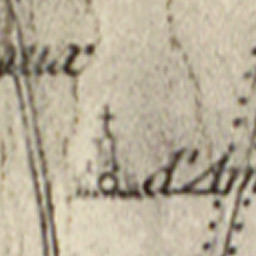 aux
d'Am